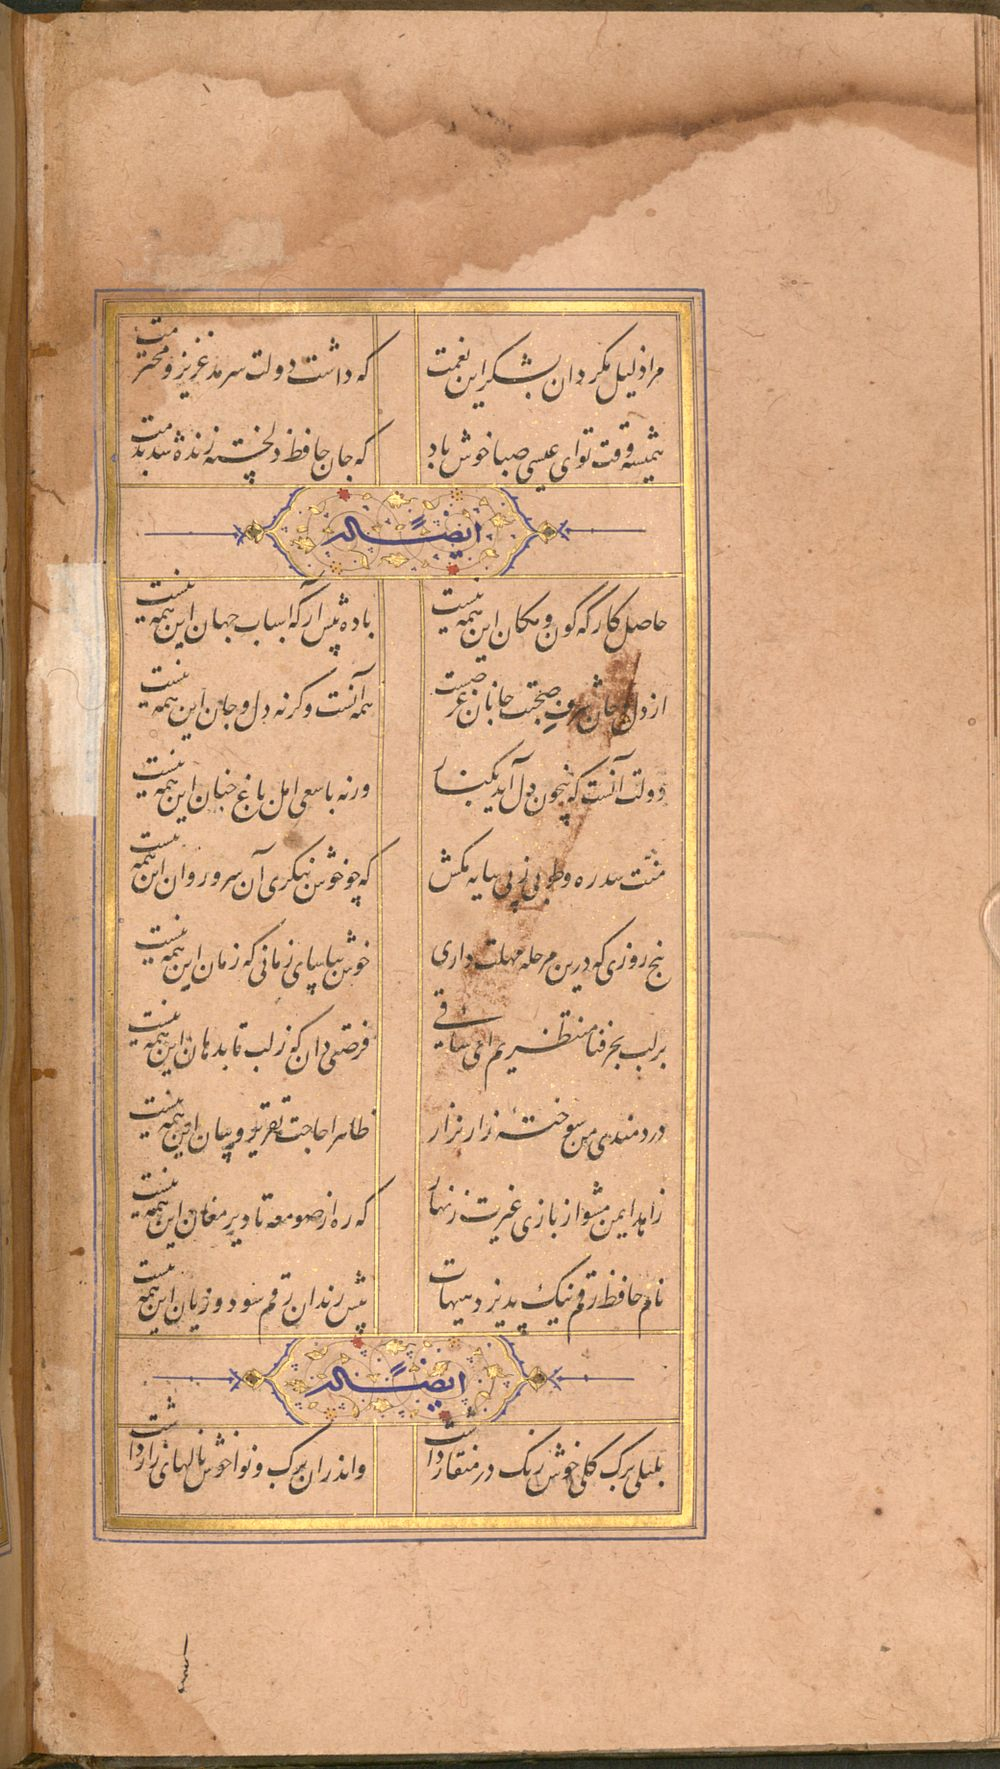 مرا ذلیل مکردان بشکر این نعمت
که داشت دولت سرمد عزیز و محترمت
همیشه وقت تو ای عیسی صبا خوش باد
که جان حافظ دلخسته زنده شد بدمت
ایضاً له
حاصل کارگه کون و مکان این همه نیست
باده پیش آر که اسباب جهان این همه نیست
از دل و جان شرف صحبت جانان غرضست
همه آنست و کرنه دل و جان این همه نیست
دولت آنست که بیخون دل آید بکنار
ورنه با سعی امل باغ جنان این همه نیست
منت سدره و طوبی ز پی سایه مکش
که چو خوش بنکری ای سرو روان این همه نیست
پنج روزی که درین مرحله مهلت داری
خوش بیاسای زمانی که زمان این همه نیست
بر لب بحر فنا منتظریم ای ساقی
فرصتی دان که ز لب تا بدهان این همه نیست
دردمندی من سوختهٔ زار نزار
ظاهرا حاجت تقریر و بیان این همه نیست
زاهد ایمن مشو از بازی غیرت زنهار
که ره از صومعه تا دیر مغان این همه نیست
نام حافظ رقم نیک پذیرد هیهات
پیش رندان رقم سود و زیان این همه نیست
ایضاً له
بلبلی برک کلی خوش رنک در منقار داشت
واندران برک و نوا خوش نالهای زار داشت